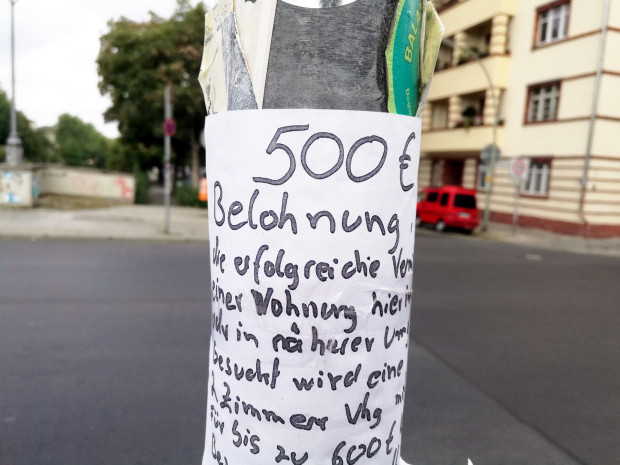 BAL
500 €
Belohnung
die erfolgreiche Verm
einer Wohnung hier in
oder in näherer Umg
Gesucht wird eine
2 Zimmer Whg mi
für bis zu 600€